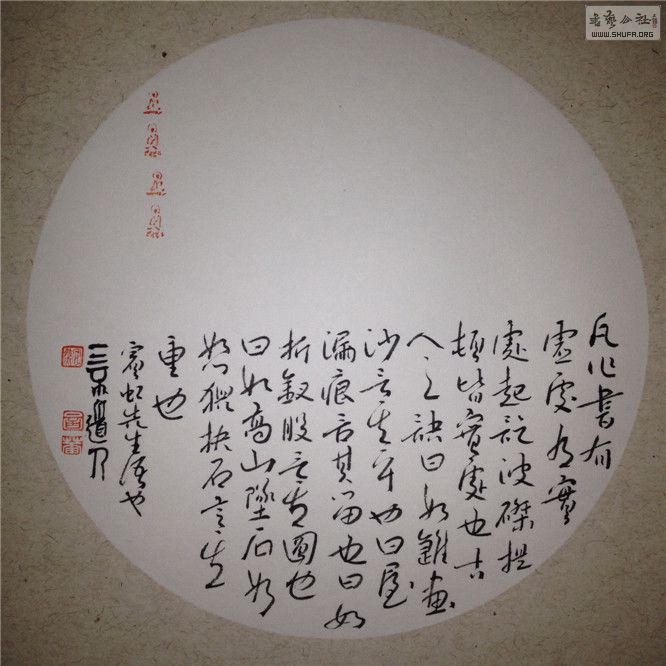 凡作書有
虛處有實
處起訖波磔提
頓皆實處也古
人之訣曰如錐畫
沙言其平也曰屋
漏痕言其留也曰如
折釵股言其圓也
曰如高山墜石如
怒猊抉石言其
重也
賓虹先生語也
書藝公社
WWW.SHUFA.ORG